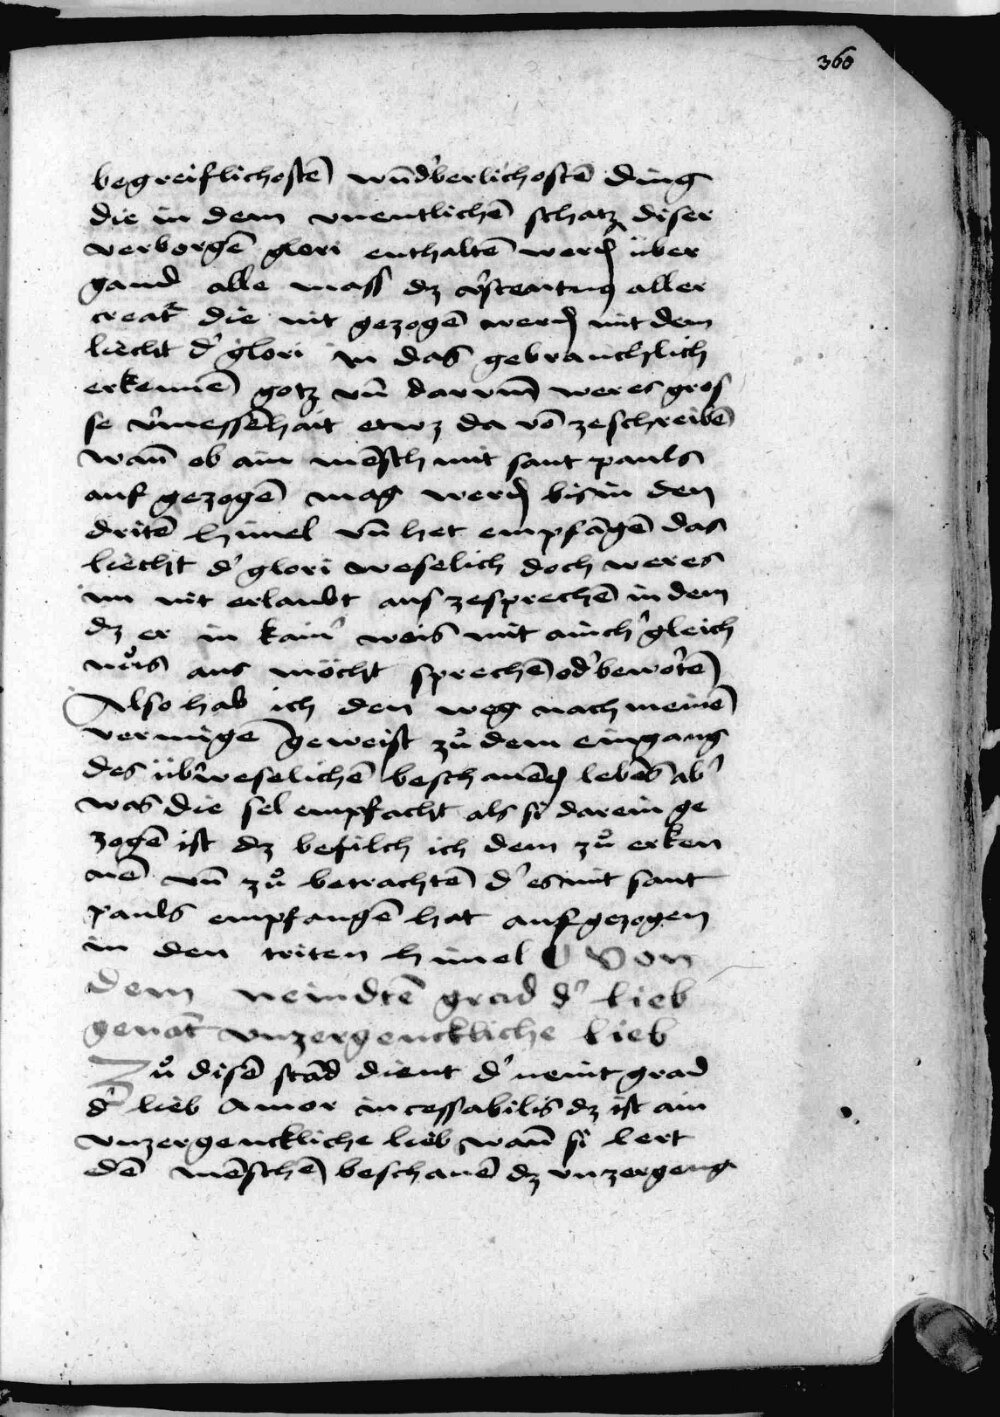 360
begreiflichostē wūd'berlichostē ding
die in dem vnentlichē schatz diser
verborgē glori enthaltē werdē über
gand alle mass dz v'stentnus aller
creat' die nit gezogē werdē mit dem
liecht d' glori in das gebrauchlich
erkennē gotz vn̄ darvm̄ wer es gros
se v'messēhait etwz da vō ze schreibē
wan̄ ob ain mēsch mit sant pauls
auf gezogē mag werdē bis in den
dritē himel vn̄ het empfāgē das
liecht d' glori weselich doch wer es
im nit erlaubt aus ze sprechē in dem
dz er in kain' weis mit ainch' gleich
nus aus möcht sprechē od' bewörē
Also hab ich den weg nach meinē
vermügē geweist zů dem eingang
des üb'weselichē beschauēdē lebēs ab'
was die sel empfacht als si darein ge
zogē ist dz befilch ich dem zů erken
nē vn̄ zů betrachtē d' es mit sant
pauls empfangē hat auf gezogen
in den triten himel Von
dem neindtē grad d' lieb
genāt vnzergenckliche lieb
Zů disē stād dient d' neint grad
d' lieb Amor incessabilis dz ist ain
vnzergenckliche lieb wan̄ si lert
dē mēschē beschauē dz vnzergeng